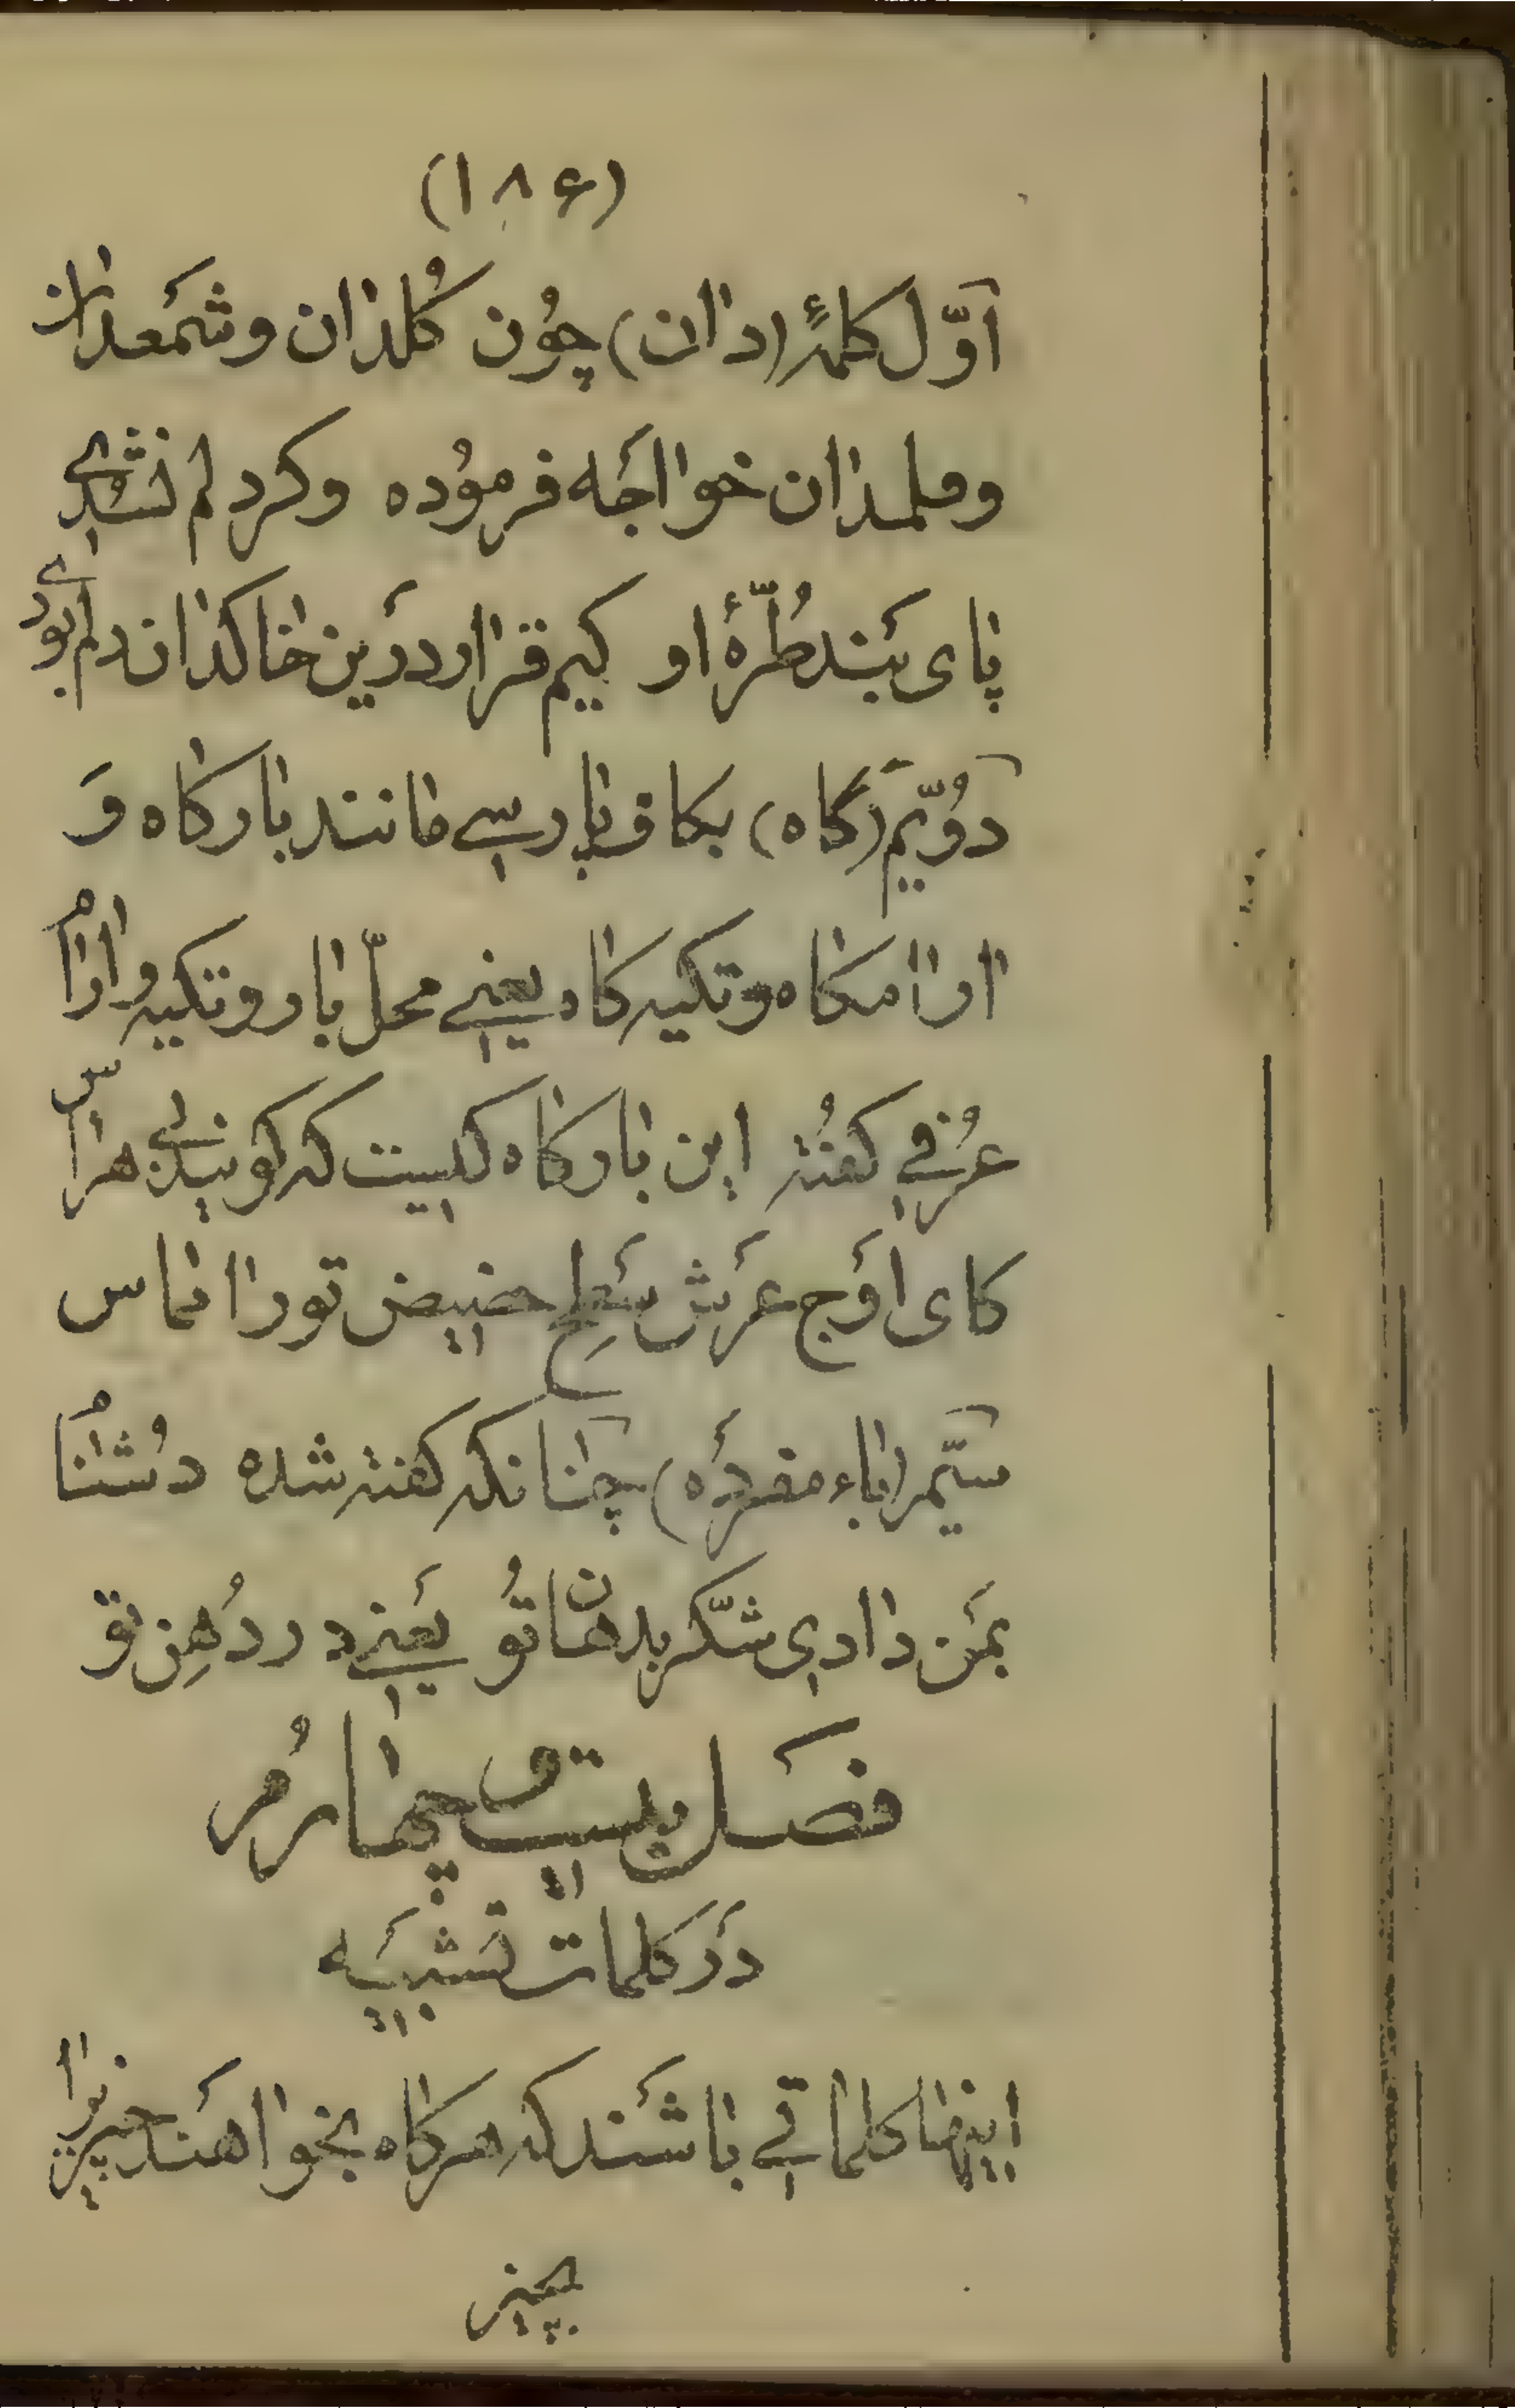 (۱۸۶)
اوّل کلمهٔ (دان) چون کلدان و شمعدان
و قلمدان خواجه فرموده و کر دلم نشدی
پای بند طرّهٔ او کیم قرار درین خاکدان دلم بودی
دویّم (کاه) بکاف پارسی مانند بارکاه و
ارامکاه و تکیه کاه یعنی محلّ بار و تکیه و ارام
عرفی کفته این بارکاه کیست که کویند بی هراس
کای اوج عرش سطح حضیض تو را مماس
سیّم (باء مفرده) چنانکه کفته شده دشنام
بمن دادی شکّر بدهان تو یعنی در دهن تو
فصل بیست و چهارم
در کلمات تشبیه
اینها کلماتی باشند که هرکاه بخواهند چیزیرا
بچیز